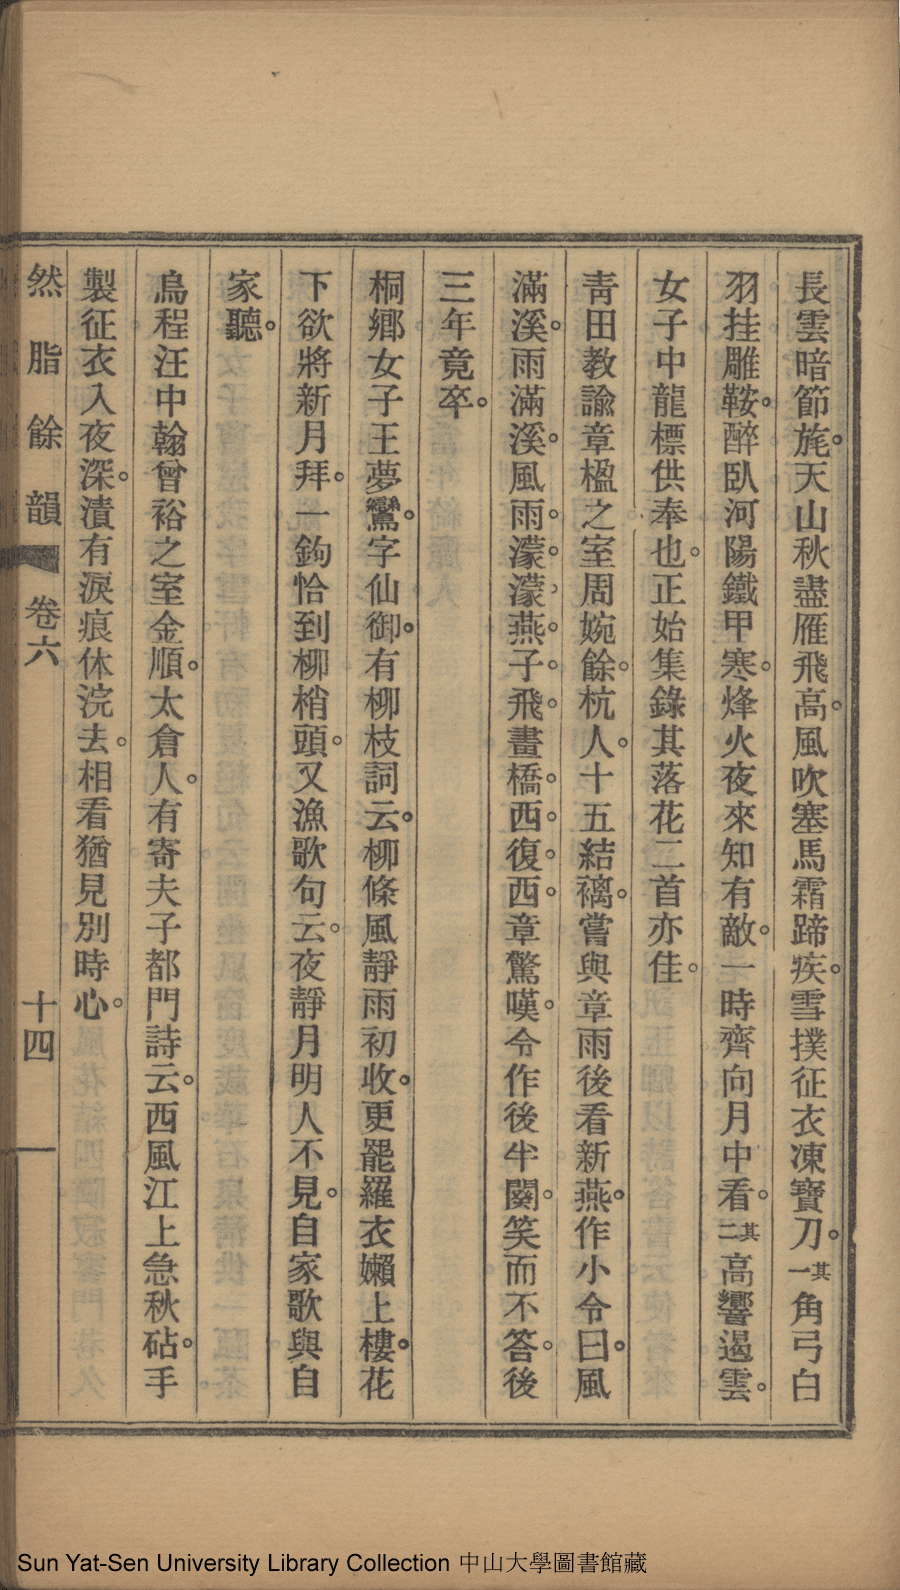 長雲暗節旄。天山秋盡雁飛高。風吹塞馬霜蹄疾。雪撲征衣凍寶刀。其一角弓白
羽挂雕鞍。醉臥河陽鐵甲寒。烽火夜來知有敵。一時齊向月中看。其二高響遏雲。
女子中龍標供奉也。正始集錄其落花二首亦佳。
靑田教諭章楹之室周婉餘。杭人。十五結褵。嘗與章雨後看新燕。作小令曰。風
滿溪。雨滿溪。風雨。濛。濛。燕。子。飛。畫橋。西。復。西。章驚嘆。令作後半闋。笑而不答。後
三年竟卒。
桐鄉女子王夢鸞。字仙御。有柳枝詞云。柳條風靜雨初收。更罷羅衣嬾上樓。花
下欲將新月拜。一鉤恰到柳梢頭。又漁歌句云。夜靜月明人不見。自家歌與自
家聽。
烏程汪中翰曾裕之室金順。太倉人。有寄夫子都門詩云。西風江上急秋砧。手
製征衣入夜深。漬有淚痕休浣去。相看猶見別時心。
然脂餘韻 卷六 十四
Sun Yat-Sen University Library Collection 中山大學圖書館藏